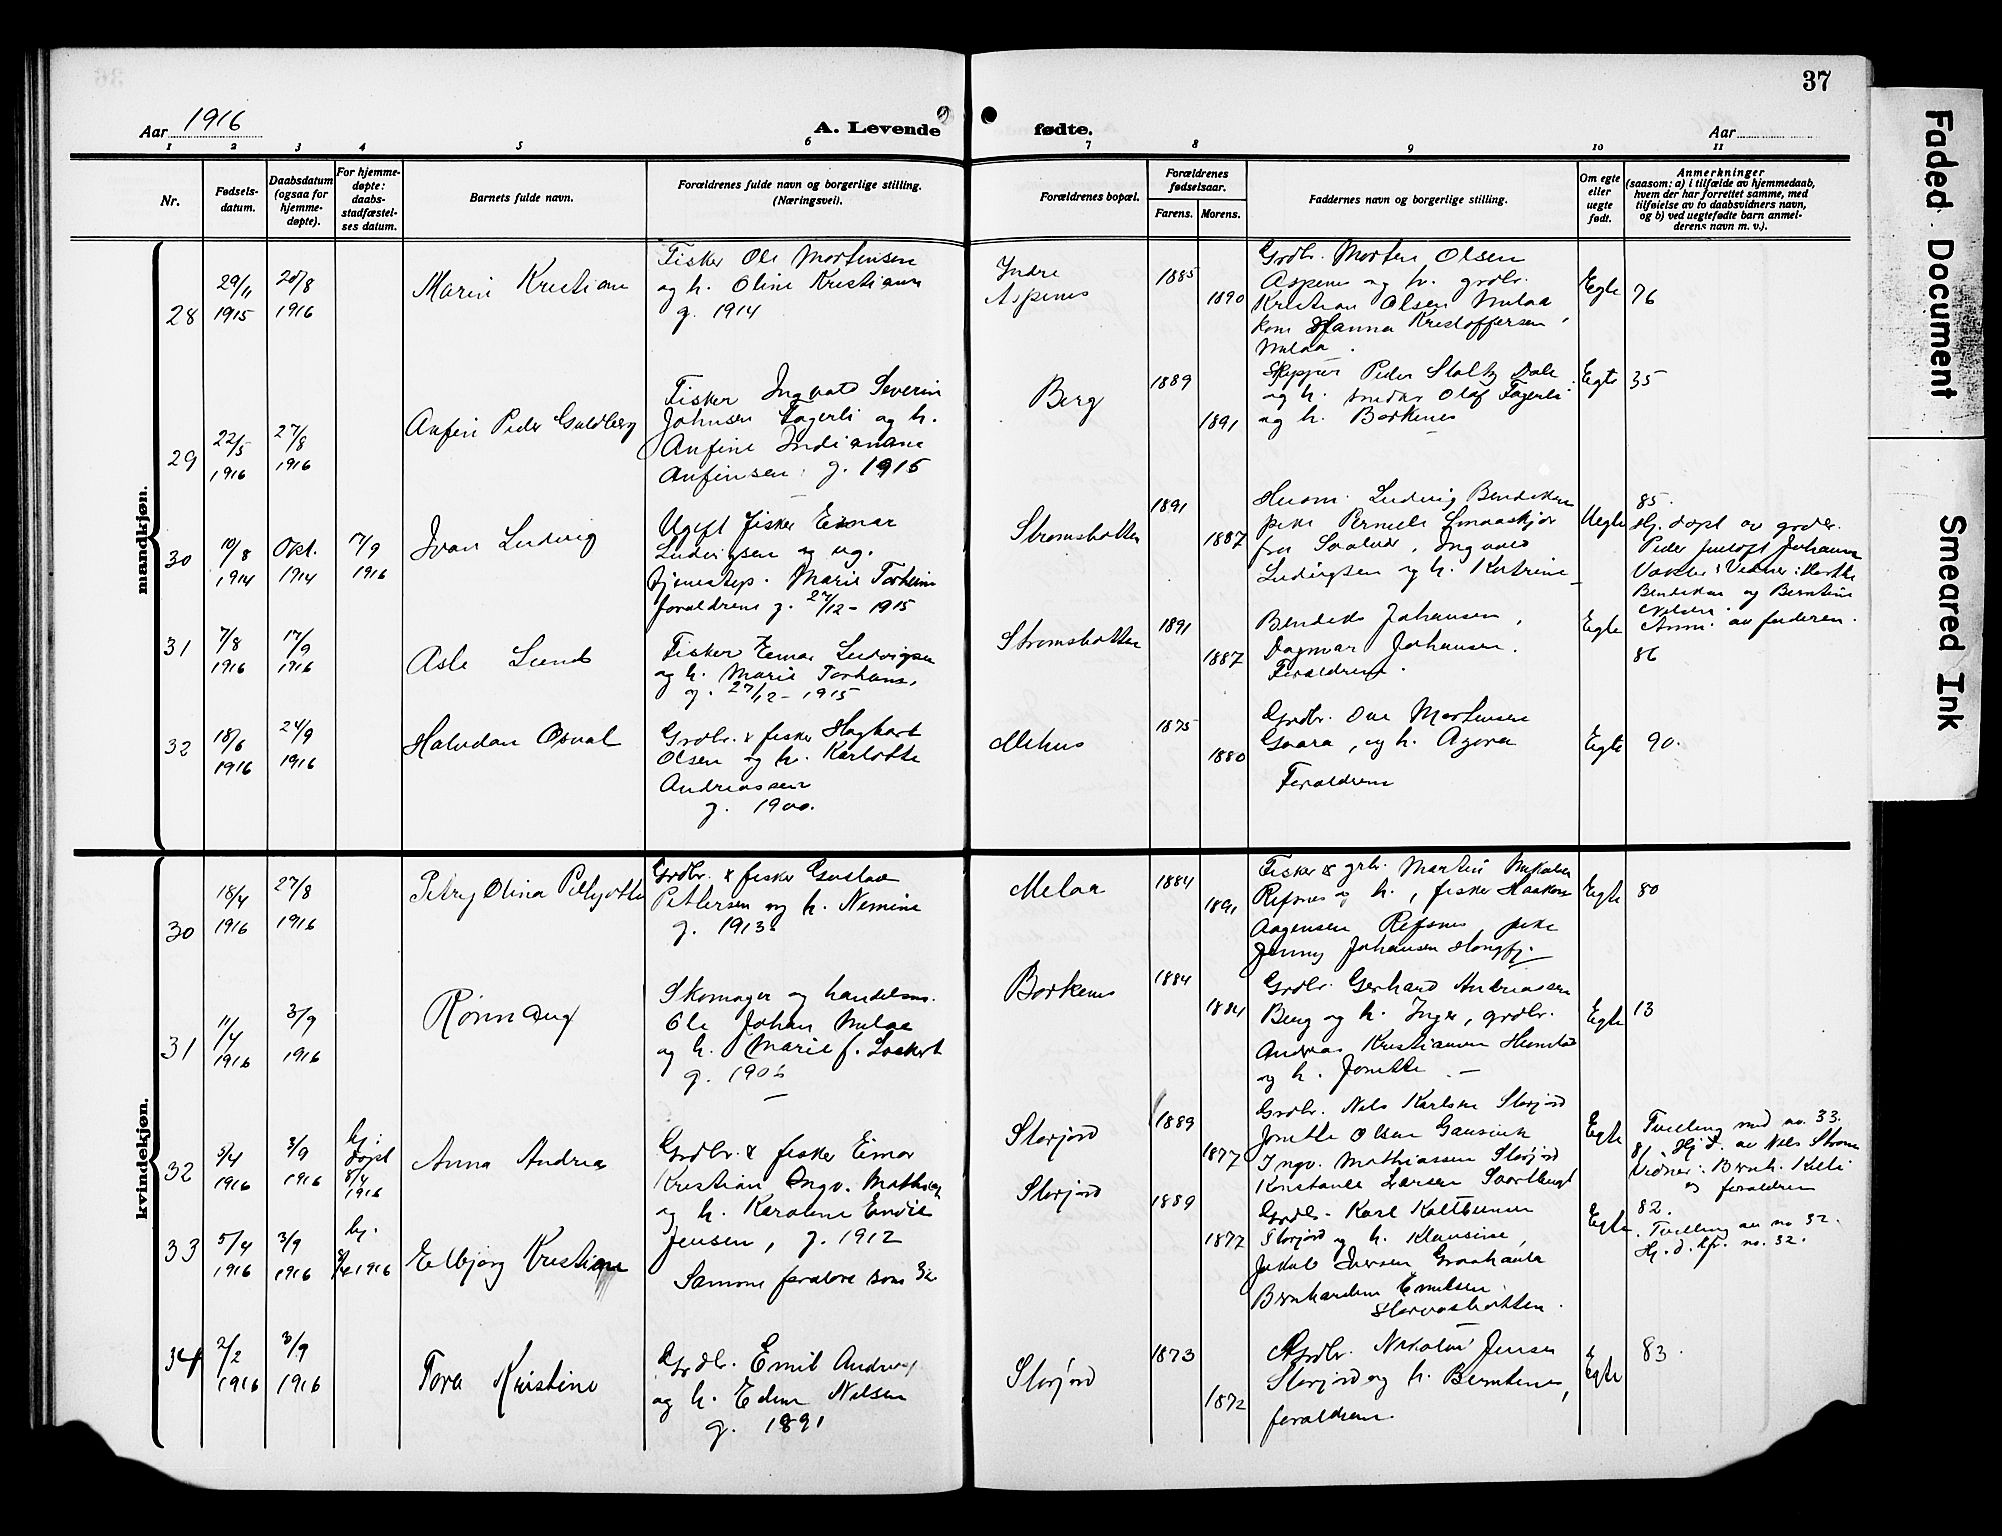 37
Aar 1916
A. Levende
fødte.
Aar
1 2 3 4 5 6 7 8 9 10 11
Nr.
Fødsels-
datum.
Daabsdatum
(ogsaa for
hjemme-
døpte).
For hjemme-
døpte:
daabs-
stadfæstel-
ses datum.
Barnets fulde navn.
Forældrenes fulde navn og borgerlige stilling.
(Næringsvei).
Forældrenes bopæl.
Forældrenes
fødselsaar.
Farens. Morens.
Faddernes navn og borgerlige stilling.
Om egte
eller
uegte
født.
Anmerkninger
(saasom: a) i tilfælde av hjemmedaab,
hvem der har forrettet samme, med
tilføielse av to daabsvidners navn,
og b) ved uegtefødte barn anmel-
derens navn m. v.).
mandkjøn.
28
29/11
1915
20/8
1916
Marin Kristian
Fisker Ole Mortensen
og h. Oline Kristiann
g. 1914
Indre
Aspenes
1885
1890
Grdbr. Morten Olsen
Aspenes og h. grdbr.
Kristian Olsen Melaa
kone Hanna Kristoffersen,
Melaa.
Egte
76
29
22/5
1916
27/8
1916
Anfin Peder Guldberg
Fisker Ingvald Severin
Johnsen Fagerli og h.
Anfine Indianane
Anfinsen: g. 1915
Berg
1889
1891
Skipper Peder Stoltz Dale
og h. snedker Olaf Fagerli
og h. Borkenes
Egte
35
30
10/8
1914
Okt.
1914
17/9
1916
Ivan Ludvig
Ugift fisker Einar
Ludvigsen og ug.
tjenestep. Marie Torheim
forældrene g. 27/12 - 1915
Strømsbotten
1891
1887
Husm. Ludvig Bendiksen
pike Pernele Smaaskjær
fra Ingvald
Ludvigsen og h. Katrine
Uegte
85.
Hj. døpt av grdbr.
Peder Johansen
Vidner: Marthe
Bendiksen og Berntine
Nilsen.
Anm. av faderen.
31
7/8
1916
17/9
1916
Asle Lund
Fisker Einar Ludvigsen
og h. Marie Torheim,
g. 27/12 - 1915
Strømsbotten
1891
1887
Bendiks Johansen,
Dagmar Johansen.
Forældrene.
Egte
86
32
18/6
1916
24/9
1916
Halvdan Osval
Grdbr. & fisker Hagbart
Olsen og h. Karlotte
Andreassen
g. 1900.
Melhus
1875
1880
Grdbr. Ove Mortensen
Gaara, og h. Agora
Forældrene
Egte
90.
kvindekjøn.
30
18/4
1916
27/8
1916
Petry Olina
Grdbr. & fisker Gustav
Pettersen og h. Nemine
g. 1913
Melaa
1884
1891
Fisker & grbr. Martin Mikalsen
Refsnes og h., fisker Haakon
Aagensen Refsnes pike
Jenny Johansen
Egte
80
31
11/4
1916
3/9
1916
Rønnaug
Skomager og handelsm.
Ole Johan Melaa
og h. Marie f. Lockert
g. 1906
Borkenes
1884
1884
Grdbr. Gerhard Andreassen
Berg og h. Inger, grdbr.
Andreas Kristiansen
og h. Jonette.
Egte
13
32
5/4
1916
3/9
1916
hj.
døpt
8/4
1916
Anna Andrea
Grdbr. & fisker Einar
Kristian Ingv. Mathisen
og h. Karoline Emilie
Jensen, g. 1912
Storjord
1889
1877
Grdbr. Nils Karlsen Storjord
Jonette Olsen
Ingv. Mathiassen Storjord
Konstanse Larsen
Egte
Tvilling med no. 33.
81. Hj. d. av Nils Strøm
Vidner: Bernh.
og forældrene
33
5/4
1916
3/9
1916
hj.
8/4 1916
Elbjørg Kristiane
Samme forældre som 32
Storjord
1889
1877
Grdbr. Karl
Storjord og h. Klausine,
Jakob Iversen
Bernhardine Emilsen
Egte
82.
Tvilling av no 32.
Hj. d. kfr. no. 32.
34
2/2
1916
3/9
1916
Tora Kristine
Grdbr. Emil
og h. Edine Nilsen
g. 1891
Storjord
1873
1872
Grdbr. Nikolai Jensen
Storjord og h. Berntine,
forældrene.
Egte
83.
Faded Document
Smeared Ink